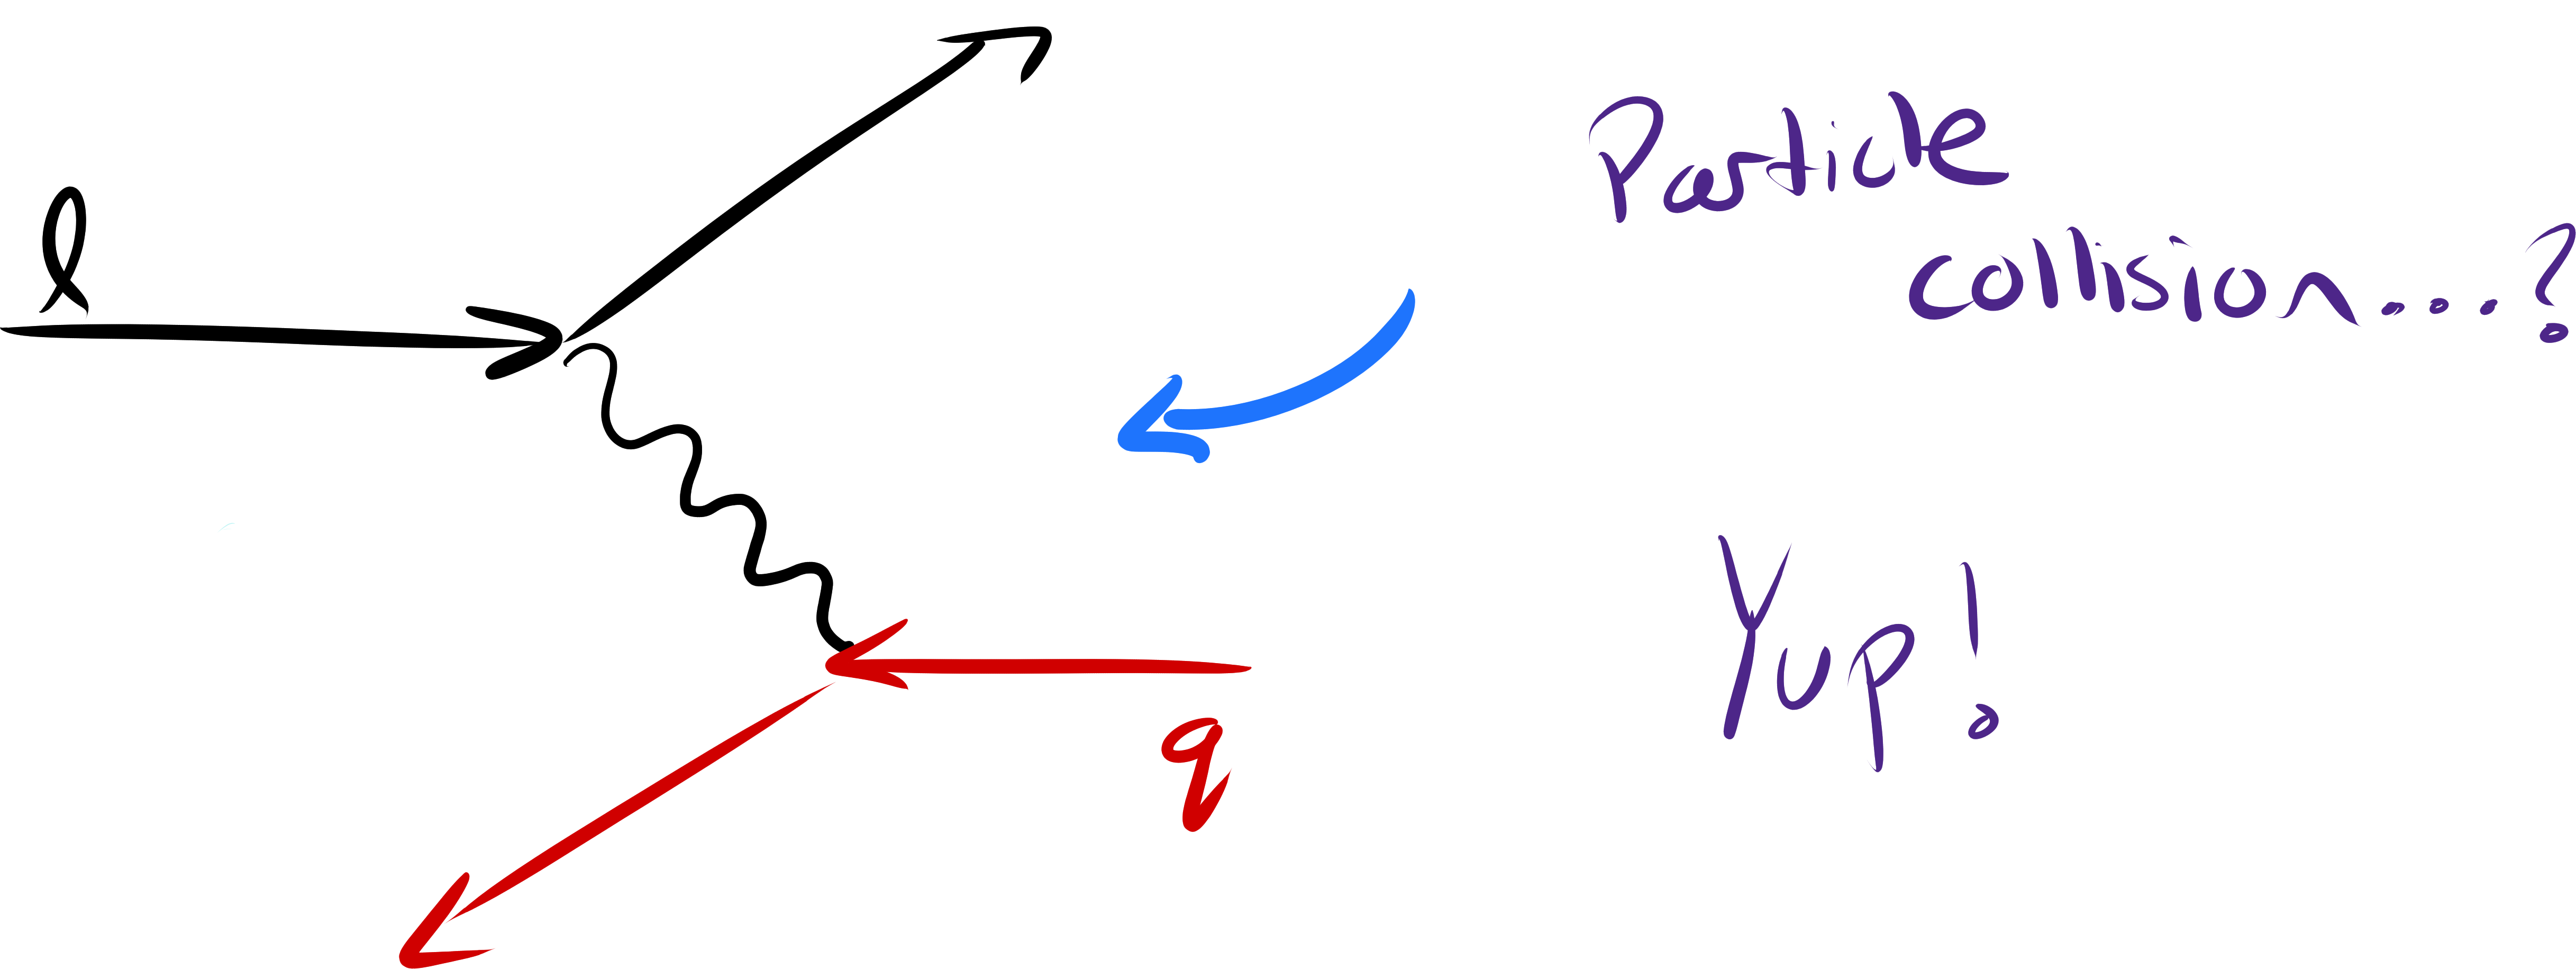 l
Particle
collision....?
Yup!
q